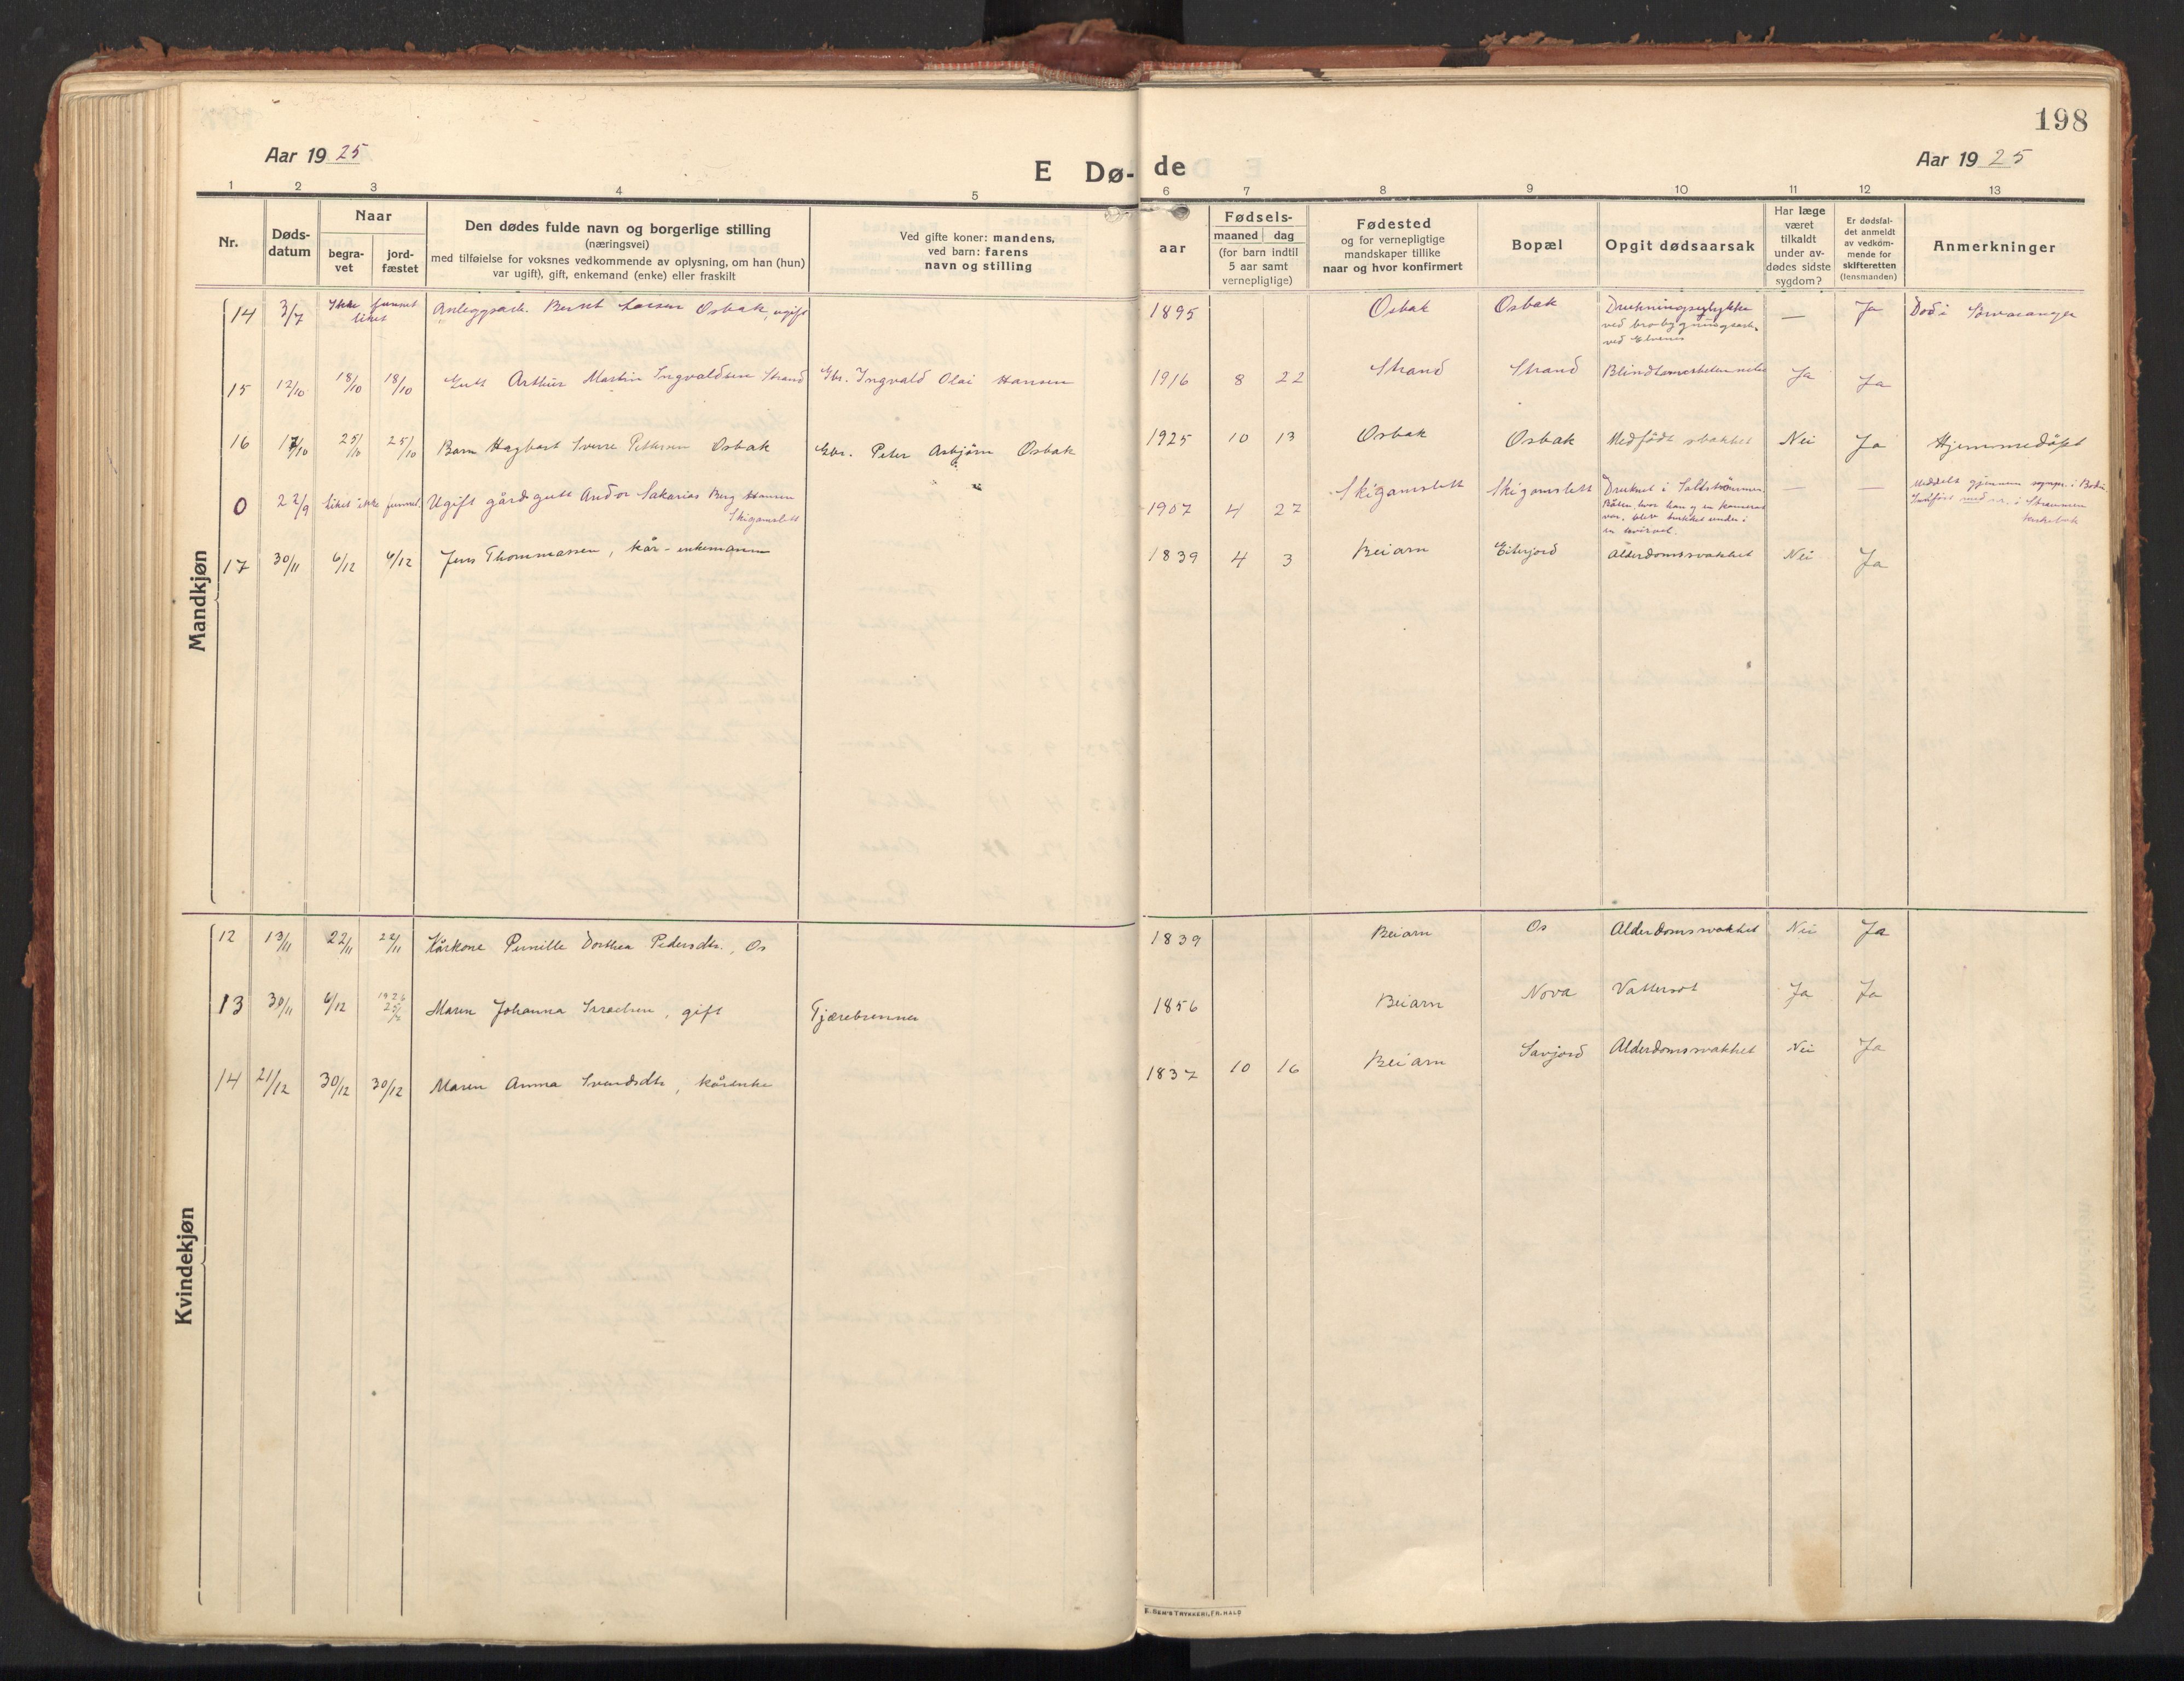 198
Aar 1925
E Dø-de
Aar 1925
1 2 3 4 5 6 7 8 9 10 11 12 13
Nr.
Døds-
datum
Naar
begra-
vet
jord-
fæstet
Den dødes fulde navn og borgerlige stilling
(næringsvei)
med tilføielse for voksnes vedkommende av oplysning, om han (hun)
var ugift), gift, enkemand (enke) eller fraskilt
Ved gifte koner: mandens,
ved barn: farens
navn og stilling
aar
Fødsels-
maaned dag
(for barn indtil
5 aar samt
vernepligtige)
Fødested
og for vernepligtige
mandskaper tillike
naar og hvor konfirmert
Bopæl
Opgit dødsaarsak
Har læge
været
tilkaldt
under av-
dødes sidste
sygdom?
Er dødsfal-
det anmeldt
av vedkom-
mende for
skifteretten
(lensmanden)
Anmerkninger
Mandkjøn
14 3/7 Ikke funnet liket Anleggsarb. Bernt Larsen Osbak, ugift 1895 Osbak Osbak Drukningsulykke — Ja Død i Sørvaranger
ved brobygningsarb.
ved Elvenes
15 12/10 18/10 18/10 Gutt Arthur Martin Ingvaldsen Strand Gbr. Ingvald Olai Hansen 1916 8 22 Strand Strand Blindtarmsbetennelse Ja Ja
16 17/10 25/10 25/10 Barn Hagbart Sverre Pettersen Osbak Gbr. Peter Asbjørn Osbak 1925 10 13 Osbak Osbak Medfødt svakhet Nei Ja Hjemmedøpt
0 22/9 Liket ikke funnet. Ugift gårdsgutt Andor Sakarias Berg Hansen 1907 4 27 Skigamslett Skigamslett Druknet i Saltstrømmen — — Meddelt gjennem sognpr. i Bodin.
Skigamslett
Båten, hvor han og en kamerat
var, blev trukket under i
en hvirvel.
Innført med nr. i Strømmen
kirkebok
17 30/11 6/12 6/12 Jens Thommassen, kår-enkemann 1839 4 3 Beiarn Eiterjord Alderdomssvakhet Nei Ja
Kvindekjøn
12 13/11 22/11 22/11 Kårkone Pernille Dorthea Pedersdtr., Os 1839 Beiarn Os Alderdomssvakhet Nei Ja
13 30/11 6/12 1926 Maren Johanna Israelsen, gift Tjærebrenner 1856 Beiarn Nova Vattersot Ja Ja
14 21/12 30/12 30/12 Maren Anna Svendsdtr, kårenke 1837 10 16 Beiarn Savjord Alderdomssvakhet Nei Ja
E. SEM'S TRYKKERI, FR.HALD